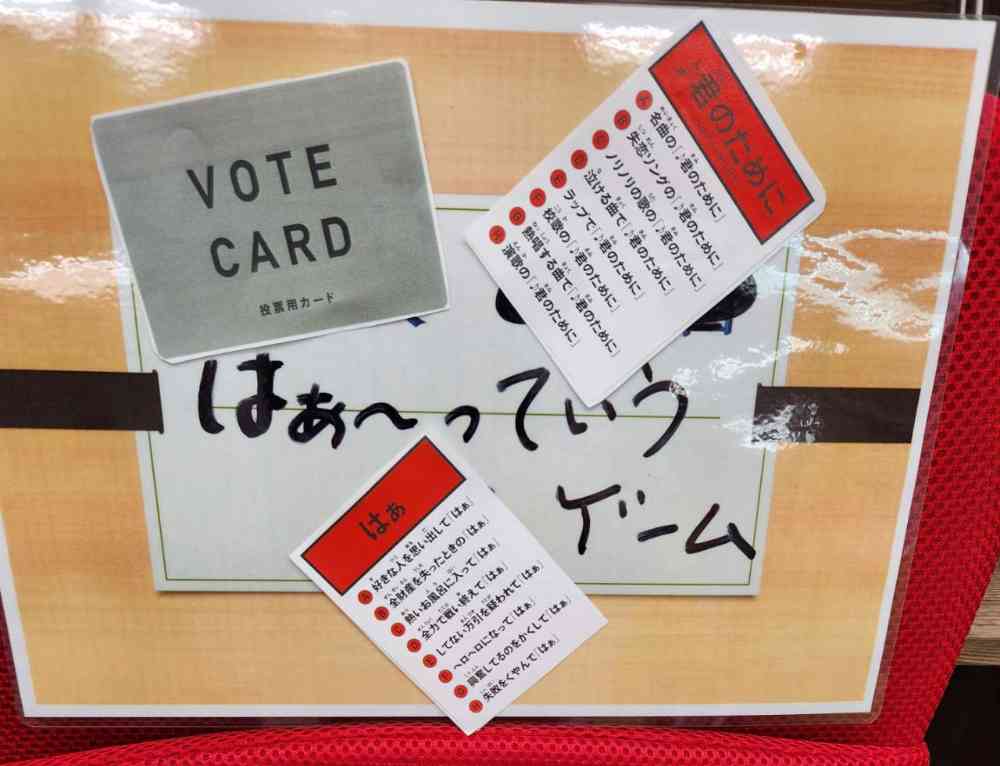 VOTE
CARD
投票用カード
♪君のために
A 名曲の「♪君のために」
B 失恋ソングの「♪君のために」
C ノリノリの歌の「♪君のために」
D 泣ける曲で「♪君のために」
E ラップで「♪君のために」
F 校歌の「♪君のために」
G 熱唱する曲で「♪君のために」
H 演歌の「♪君のために」
はぁ〜っていう
ゲーム
はぁ
A 好きな人を思い出して「はぁ」
B 全財産を失ったときの「はぁ」
C 熱いお風呂に入って「はぁ」
D 全力で戦い終えて「はぁ」
E してない万引を疑われて「はぁ」
F ヘロヘロになって「はぁ」
G 興奮してるのをかくして「はぁ」
H 失敗をくやんで「はぁ」